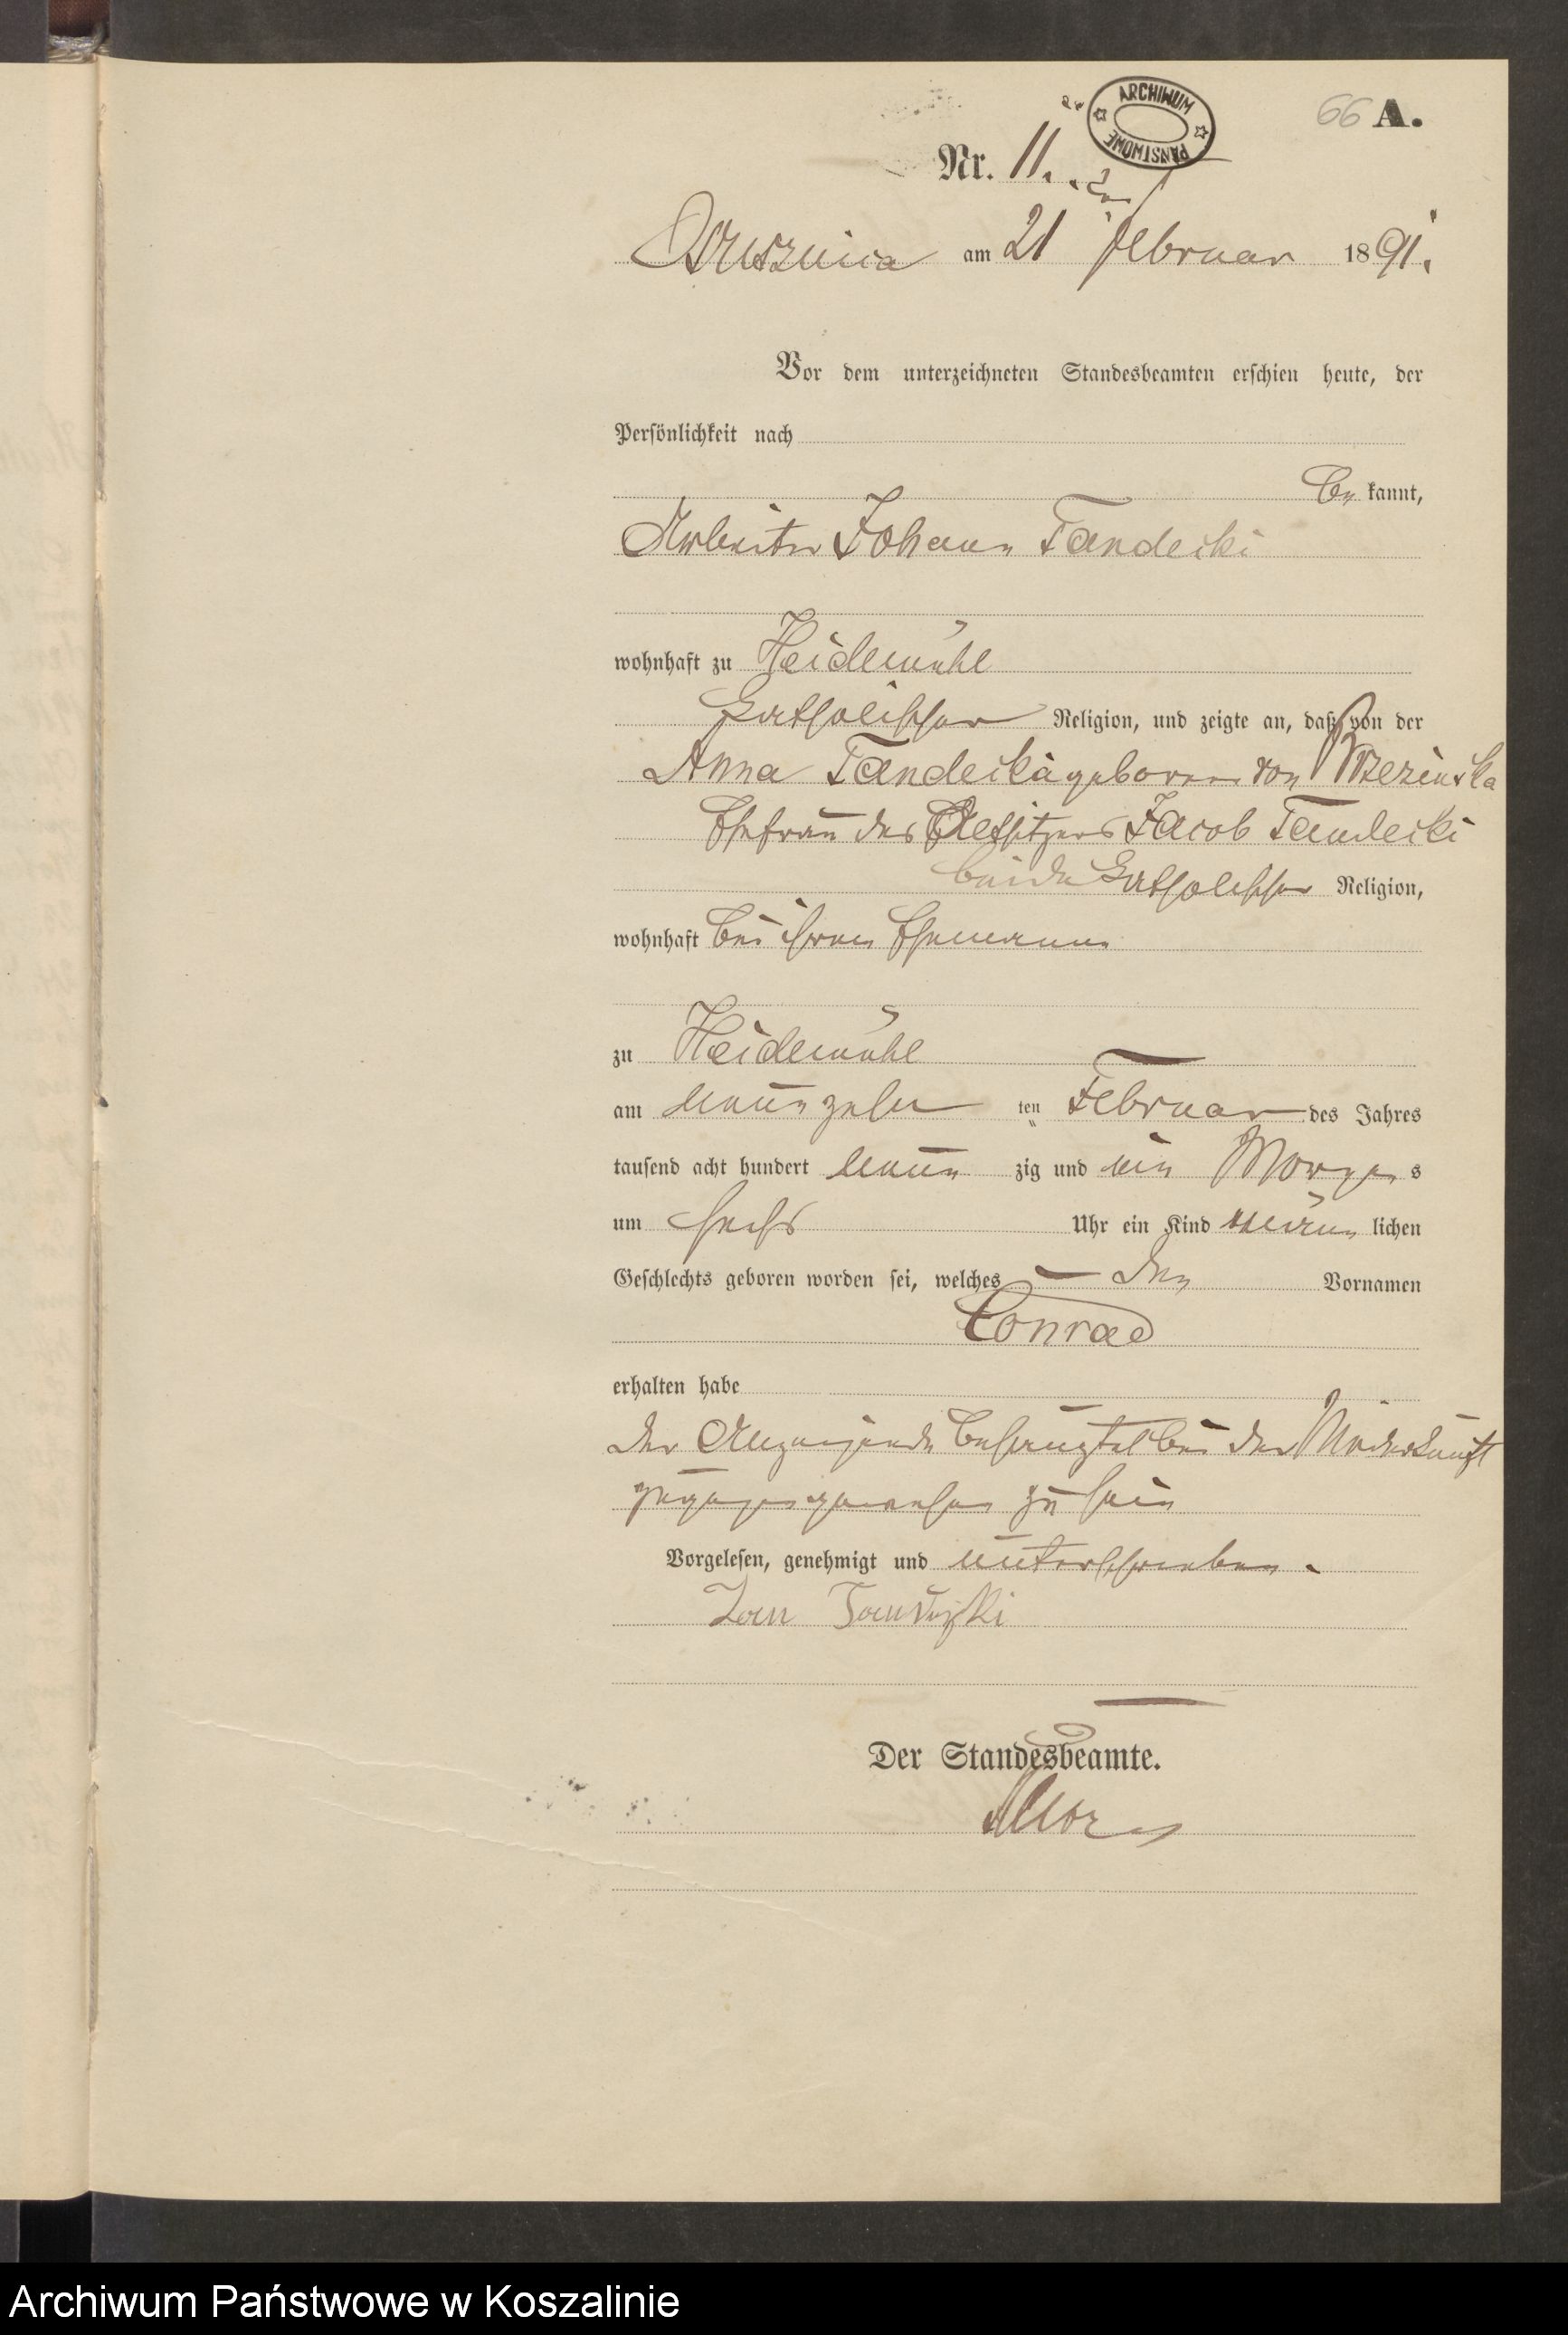 66 A.
ARCHIWUM PAŃSTWOWE
Nr. 11.
Brusznica am 21 Februar 1891.
Vor dem unterzeichneten Standesbeamten erschien heute, der
Persönlichkeit nach
be kannt,
Arbeiter Johann Tandecki
wohnhaft zu Heidemühl
katholischer Religion, und zeigte an, daß von der
Anna Tandecki geborene von
Ehefrau des Besitzers Jacob Tandecki
beide katholischer Religion,
wohnhaft bei ihrem Ehemanne
zu Heidemühl
am neunzehn ten Februar des Jahres
tausend acht hundert neun zig und ein Morgen s
um sechs Uhr ein Kind männ lichen
Geschlechts geboren worden sei, welches den Vornamen
Conrad
erhalten habe
Der Anzeigende behauptet bei der Niederkunft
zugegen gewesen zu sein
Vorgelesen, genehmigt und unterschrieben.
Jan
Der Standesbeamte.
Archiwum Państwowe w Koszalinie